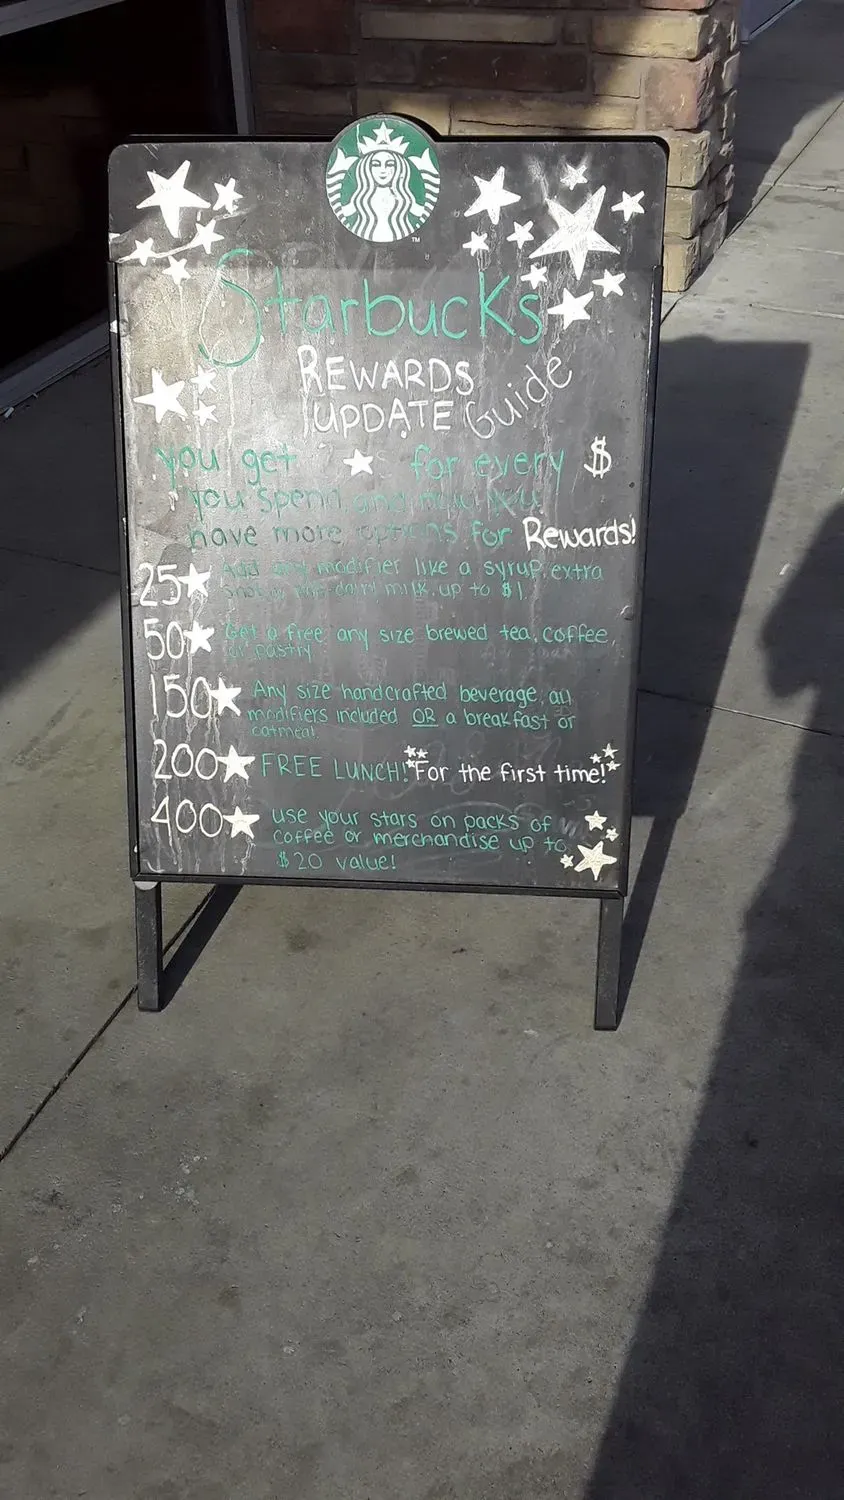 TM
Starbucks
REWARDS
UPDATE Guide
you get ★s for every $
you spend, and now you
have more options for Rewards!
25★ Add any modifier like a syrup, extra
shot, or non-dairy milk, up to $1.
50★ Get a free any size brewed tea, coffee,
or pastry
150★ Any size handcrafted beverage, all
modifiers included OR a breakfast or
oatmeal.
200★ FREE LUNCH! "For the first time!"
400★ use your stars on packs of
coffee or merchandise up to
$20 value!